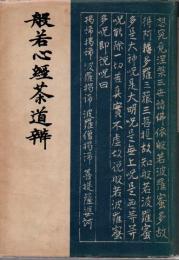 想究竟涅槃三世諸佛依般若波羅蜜多故
得阿耨多羅三藐三菩提故知般若波羅蜜
多是大神呪是大明呪是無上呪是無等等
呪能除一切苦真實不虚故説般若波羅蜜
多呪即説呪曰
揭諦揭諦 波羅揭諦 波羅僧揭諦 菩提薩婆訶
般若心經茶道辨